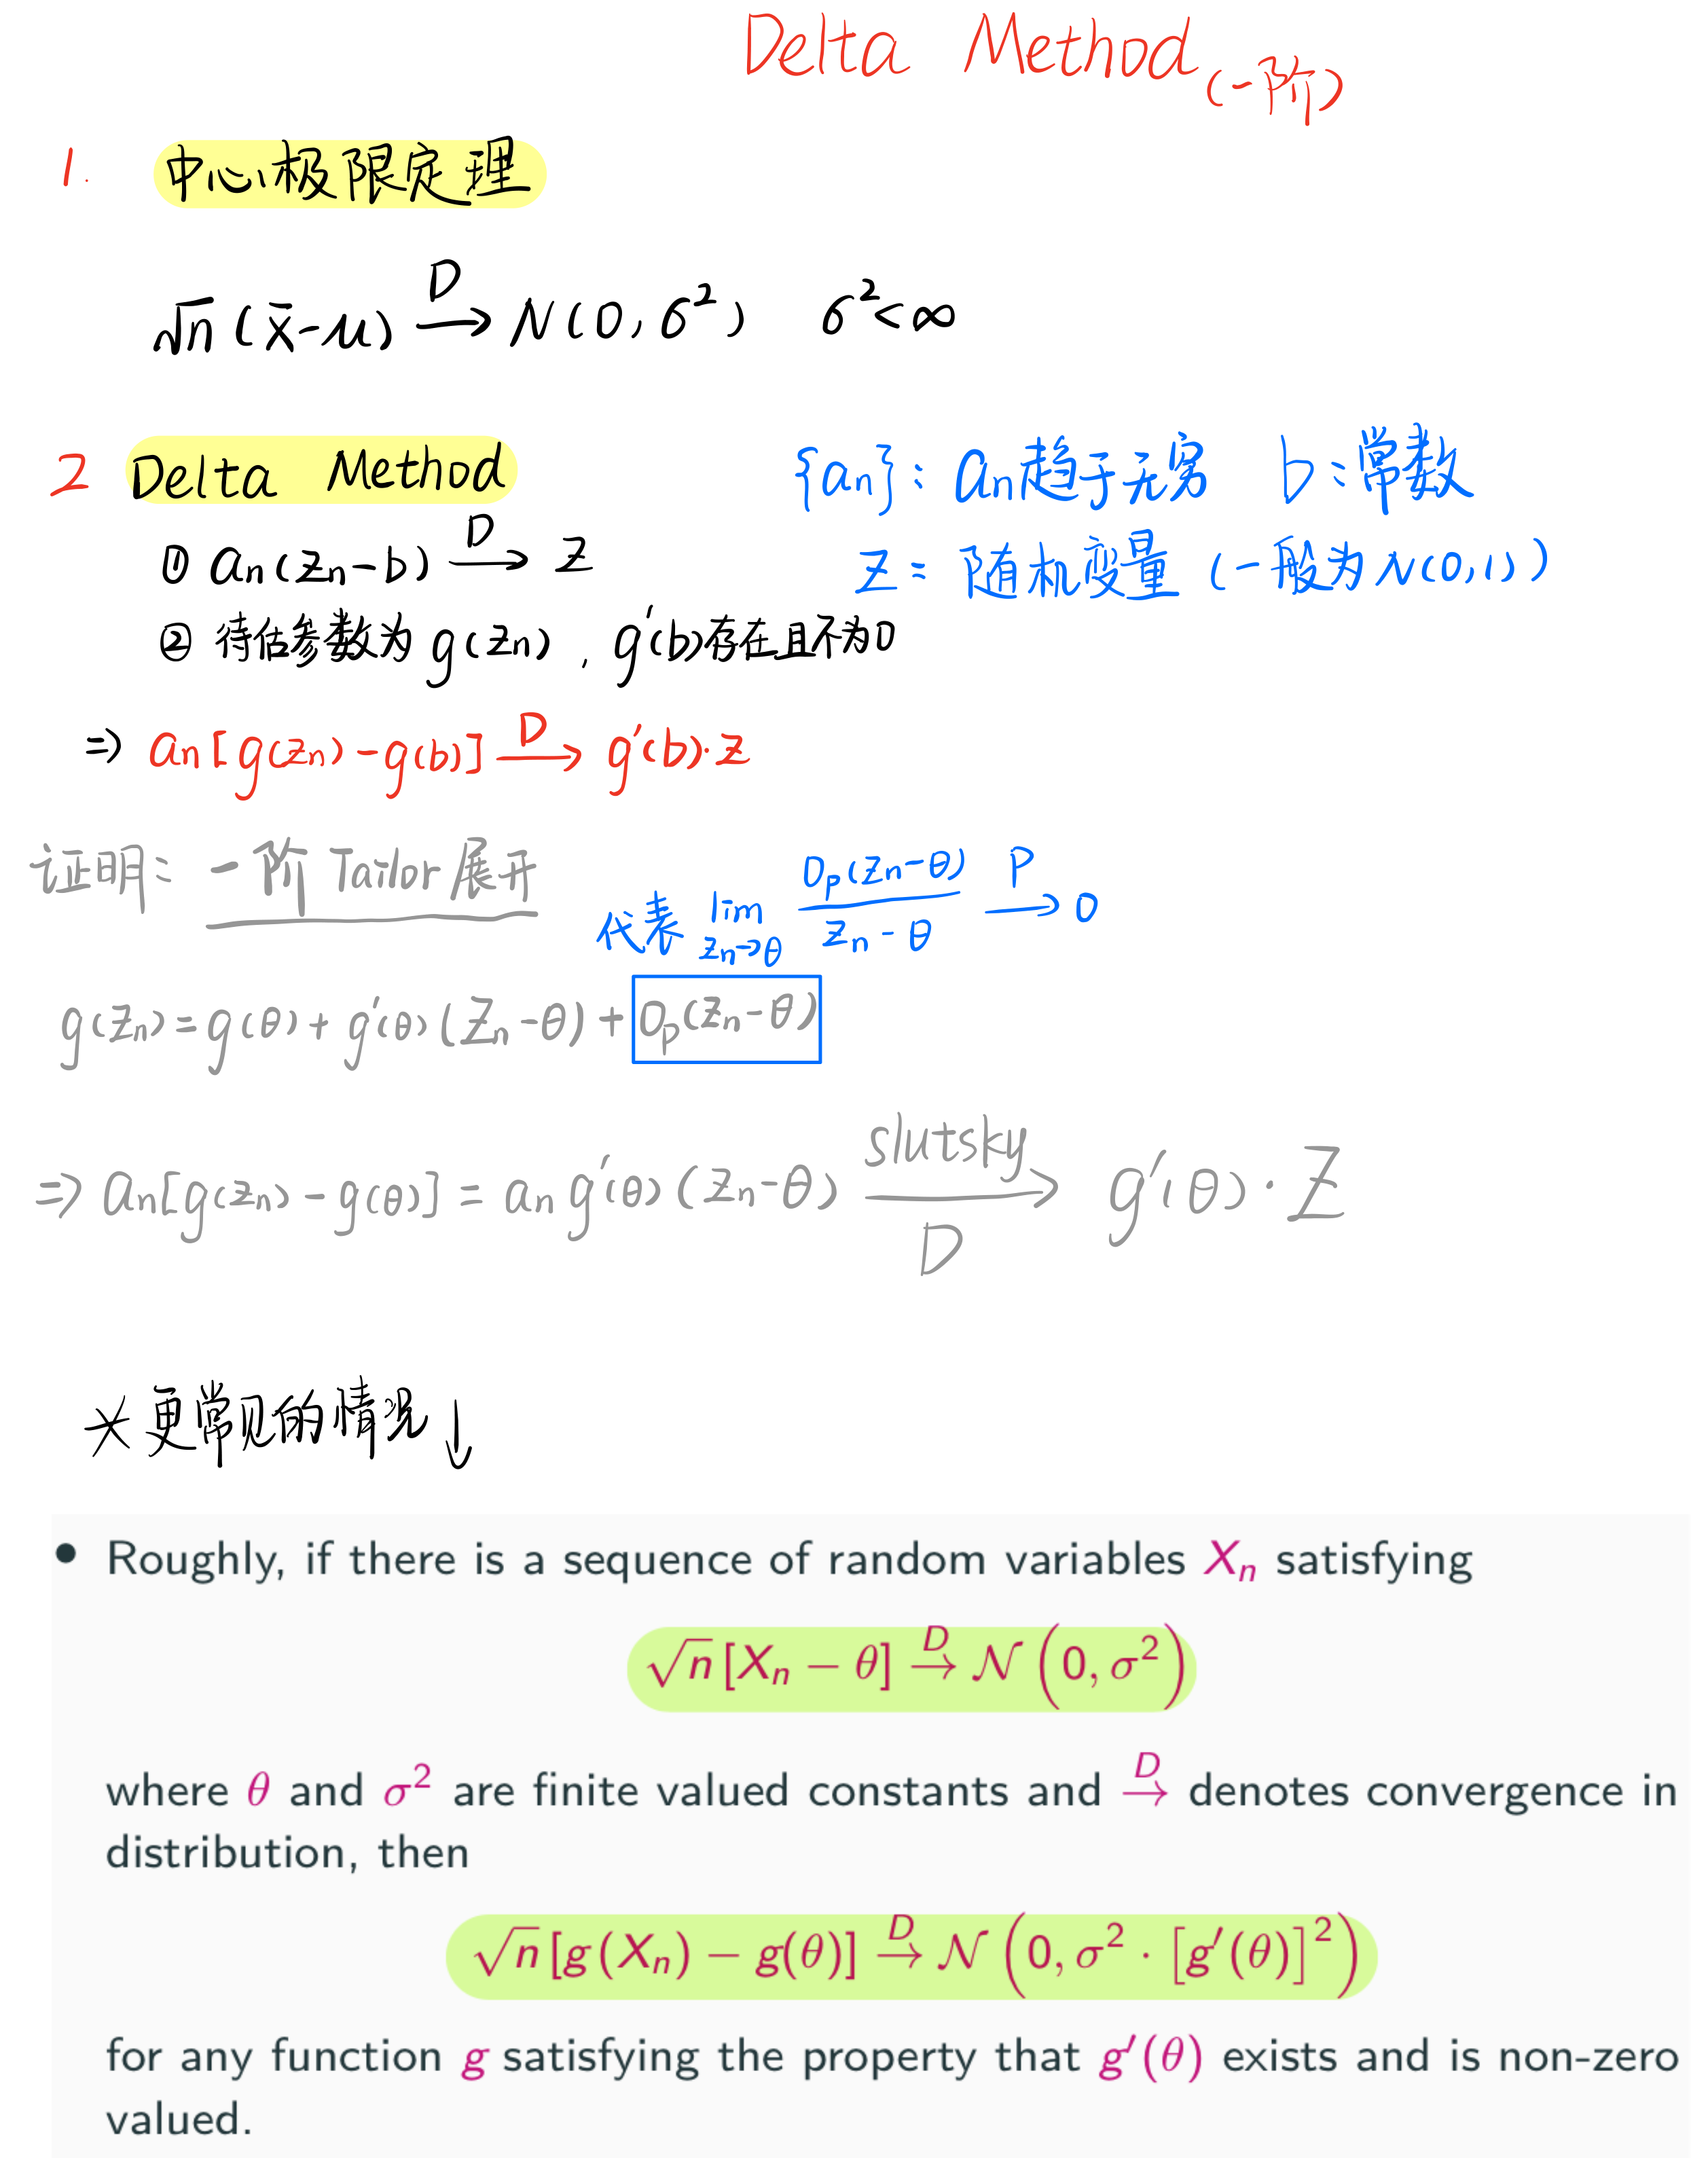 Delta Method (一阶)
1. 中心极限定理
√n (x̄-μ) →ᴰ N(0, σ²) σ²<∞
2 Delta Method {an}: an趋于无穷 b:常数
① an(Zn-b) →ᴰ Z Z= 随机变量 (一般为N(0,1))
② 待估参数为 g(Zn), g'(b)存在且不为0
⇒ an[g(Zn)-g(b)] →ᴰ g'(b)·Z
证明: 一阶 Tailor 展开
代表 lim_{Zn→θ} Op(Zn-θ) / (Zn-θ) →ᴾ 0
g(Zn)=g(θ)+g'(θ)(Zn-θ)+Op(Zn-θ)
⇒ an[g(Zn)-g(θ)] = an g'(θ)(Zn-θ) slutsky →D g'(θ)·Z
* 更常见的情况↓
• Roughly, if there is a sequence of random variables Xn satisfying
√n [Xn − θ] →ᴰ N(0, σ²)
where θ and σ² are finite valued constants and →ᴰ denotes convergence in
distribution, then
√n [g(Xn) − g(θ)] →ᴰ N(0, σ² · [g′(θ)]²)
for any function g satisfying the property that g′(θ) exists and is non-zero
valued.